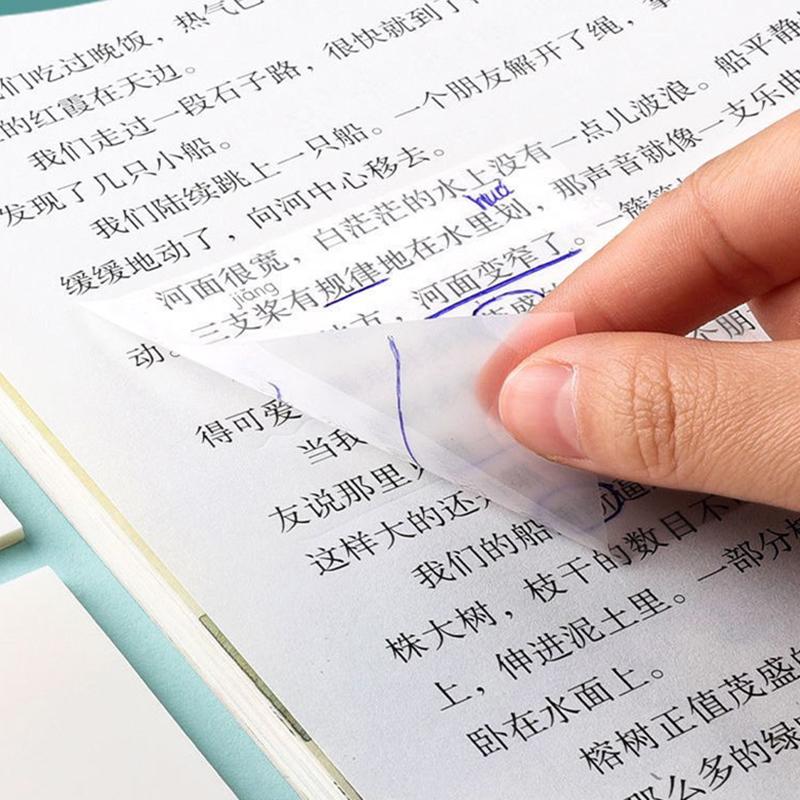 们吃过晚饭，热气已
的红霞在天边。
我们走过一段石子路，很快就到了
发现了几只小船。
我们陆续跳上一只船。一个朋友解开了绳，
缓缓地动了，向河中心移去。
河面很宽，白茫茫的水上没有一点儿波浪。船平静
huá
jiāng
三支桨有规律地在水里划，那声音就像一支乐曲
动。 方，河面变窄了。一簇簇
茂盛的
得可爱
个朋
当我
友说那里
这样大的还
我们的船 逼
株大树，枝干的数目不
上，伸进泥土里。一部分
卧在水面上。
榕树正值茂盛的
那么多的绿